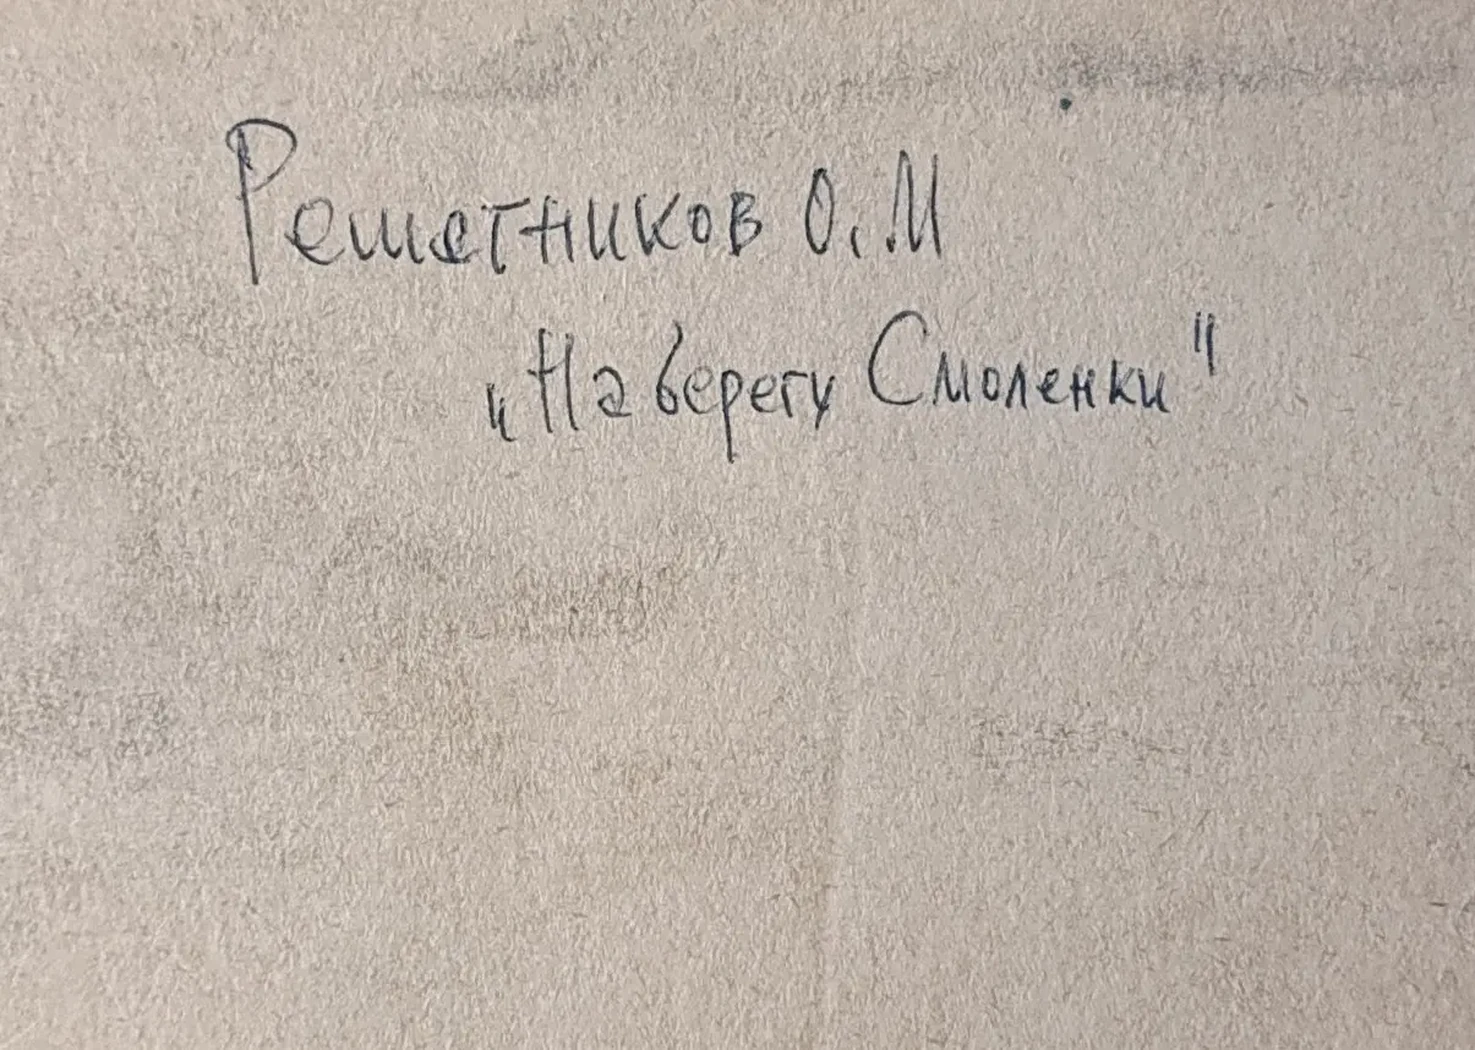 Решетников О.М
„На берегу Смоленки"